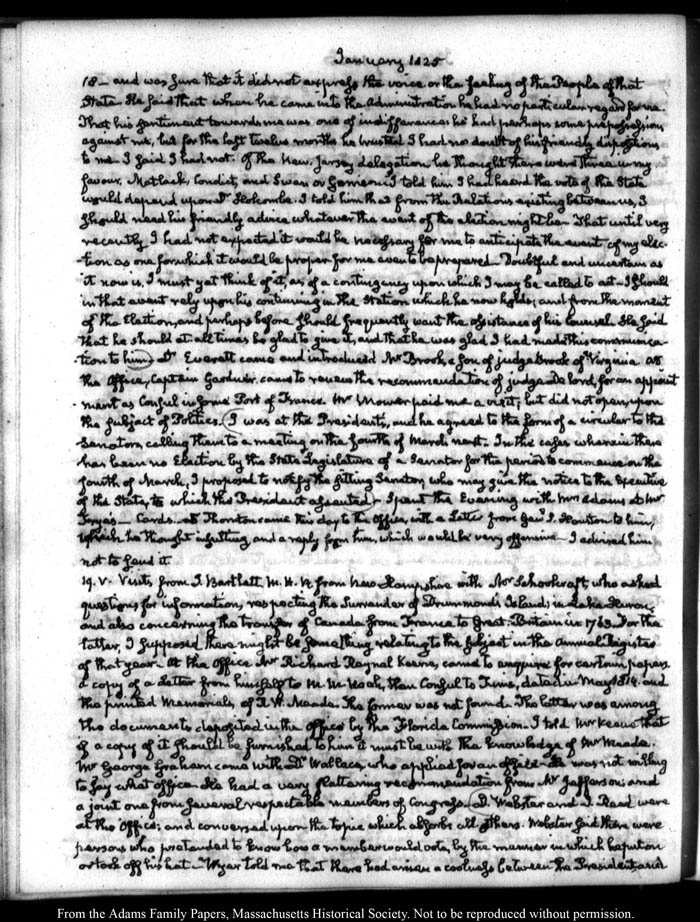 January 1825
18 — and was sure that it did not express the voice or the feeling of the People of that
State. He said that when he came into the Administration he had no particular regard for me.
That his sentiment towards me was one of indifference; he had perhaps some prepossession
against me, but for the last twelve months he trusted I had no doubt of his friendly dispositions
to me. I said I had not. Of the New-Jersey delegation he thought there were three in my
favour. Matlack, Condict, and Swan or Garrison. I told him I had heard the vote of the State
would depend upon Dr Holcombe. I told him that from the Relations existing between us, I
should need his friendly advice whatever the event of the election might be. That until very
recently I had not expected it would be necessary for me to anticipate the event of my elec-
-tion as one for which it would be proper for me even to be prepared. Doubtful and uncertain as
it now is, I must yet think of it, as of a contingency upon which I may be called to act. I should
in that event rely upon his continuing in the Station which he now holds; and from the moment
of the Election, and perhaps before should frequently want the assistance of his Counsel. He said
that he should at all times be glad to give it, and that he was glad I had made this communica-
tion to him. Dr Everett came and introduced Mr Brook, a son of judge Brook of Virginia. At
the Office, Captain Gardner came to renew the recommendation of judge De lord, for an appoint
ment as Consul in some Port of France. Mr Mower paid me a visit; but did not open, upon
the subject of Politics. I was at the President's, and he agreed to the form of a circular to the
Senators, calling them to a meeting on the fourth of March next. In the cases wherein there
has been no Election by the State Legislature of a Senator for the period to commence on the
fourth of March, I proposed to notify the sitting Senator, who may give the notice to the Executive
of the State, to which the President assented. I spent the Evening with Mrs Adams at Mr
Frye's — Cards. Dr Thornton came this day to the Office, with a Letter from Genl. S. Houston to him,
which he thought insulting, and a reply from him, which would be very offensive. I advised him
not to send it.
19. V. Visits, from I. Bartlett, M. H. R from New Hampshire with Mr Schoolcraft, who asked
questions for information, respecting the Surrender of Drummond's Island, in Lake Huron,
and also concerning the transfer of Canada from France to Great-Britain in 1763. For the
latter, I supposed there might be something relating to the subject in the Annual Register
of that year. At the Office Mr Richard Raynal Keene, came to enquire for certain papers.
A copy of a Letter from himself to M. M. Noah, then Consul to Tunis, dated in May 1814. and
the printed Memorials, of R. W. Meade. The former was not found. The latter was among
the documents deposited in the Office by the Florida Commission. I told Mr Keene that
if a copy of it should be furnished to him it must be with the knowledge of Mr Meade.
Mr George Graham came with Dr Wallace, who applied for an office. He was not willing
to say what office. He had a very flattering recommendation from Mr Jefferson; and
a joint one from several respectable members of Congress. D. Webster and J. Reed were
at the Office; and conversed upon the topic which absorbs all others. Webster said there were
persons who pretended to know how a member would vote, by the manner in which he put on
or took off his hat. Wyer told me that there had arisen a coolness between the President and
From the Adams Family Papers, Massachusetts Historical Society. Not to be reproduced without permission.